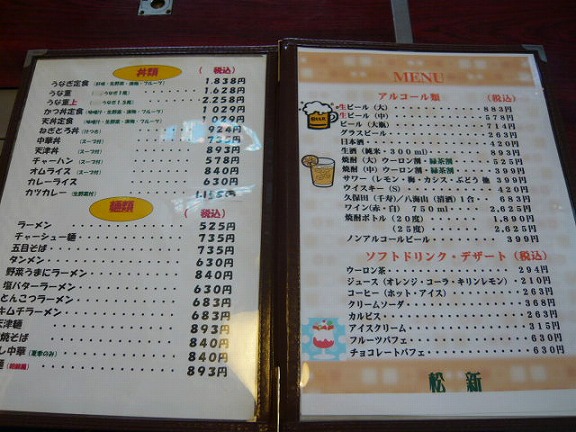 丼類 (税込)
うなぎ定食 1,838円
うな重 1,628円
うな重上 2,258円
かつ丼定食 1029円
天丼定食 1029円
ねぎとろ丼 924円
中華丼 (スープ付) 735円
天津丼 (スープ付) 893円
チャーハン (スープ付) 578円
オムライス (スープ付) 840円
カレーライス 630円
カツカレー (生野菜付)
麺類 (税込)
ラーメン 525円
チャーシュー麺 735円
五目そば 735円
タンメン 630円
野菜うまにラーメン 840円
塩バターラーメン 630円
とんこつラーメン 683円
キムチラーメン 683円
天津麺 893円
焼そば 840円
し中華 (夏季のみ) 840円
893円
MENU
アルコール類 (税込)
生ビール (大) 883円
生ビール (中) 578円
ビール (大瓶) 714円
グラスビール 263円
日本酒 420円
生酒 (純米・300ml) 893円
焼酎 (大) ウーロン割・緑茶割 525円
焼酎 (中) ウーロン割・緑茶割 399円
サワー (レモン・梅・カシス・ぶどう 他 399円
ウイスキー (S) 420円
久保田 (千寿) /八海山 (清酒) 1合 683円
ワイン(赤・白) 750ml 2,625円
焼酎ボトル (20度) 1,890円
(25度) 2,625円
ノンアルコールビール 399円
ソフトドリンク・デザート (税込)
ウーロン茶 294円
ジュース (オレンジ・コーラ・キリンレモン) 210円
コーヒー (ホット・アイス) 263円
クリームソーダ 368円
カルピス 263円
アイスクリーム 315円
フルーツパフェ 630円
チョコレートパフェ 630円
松新